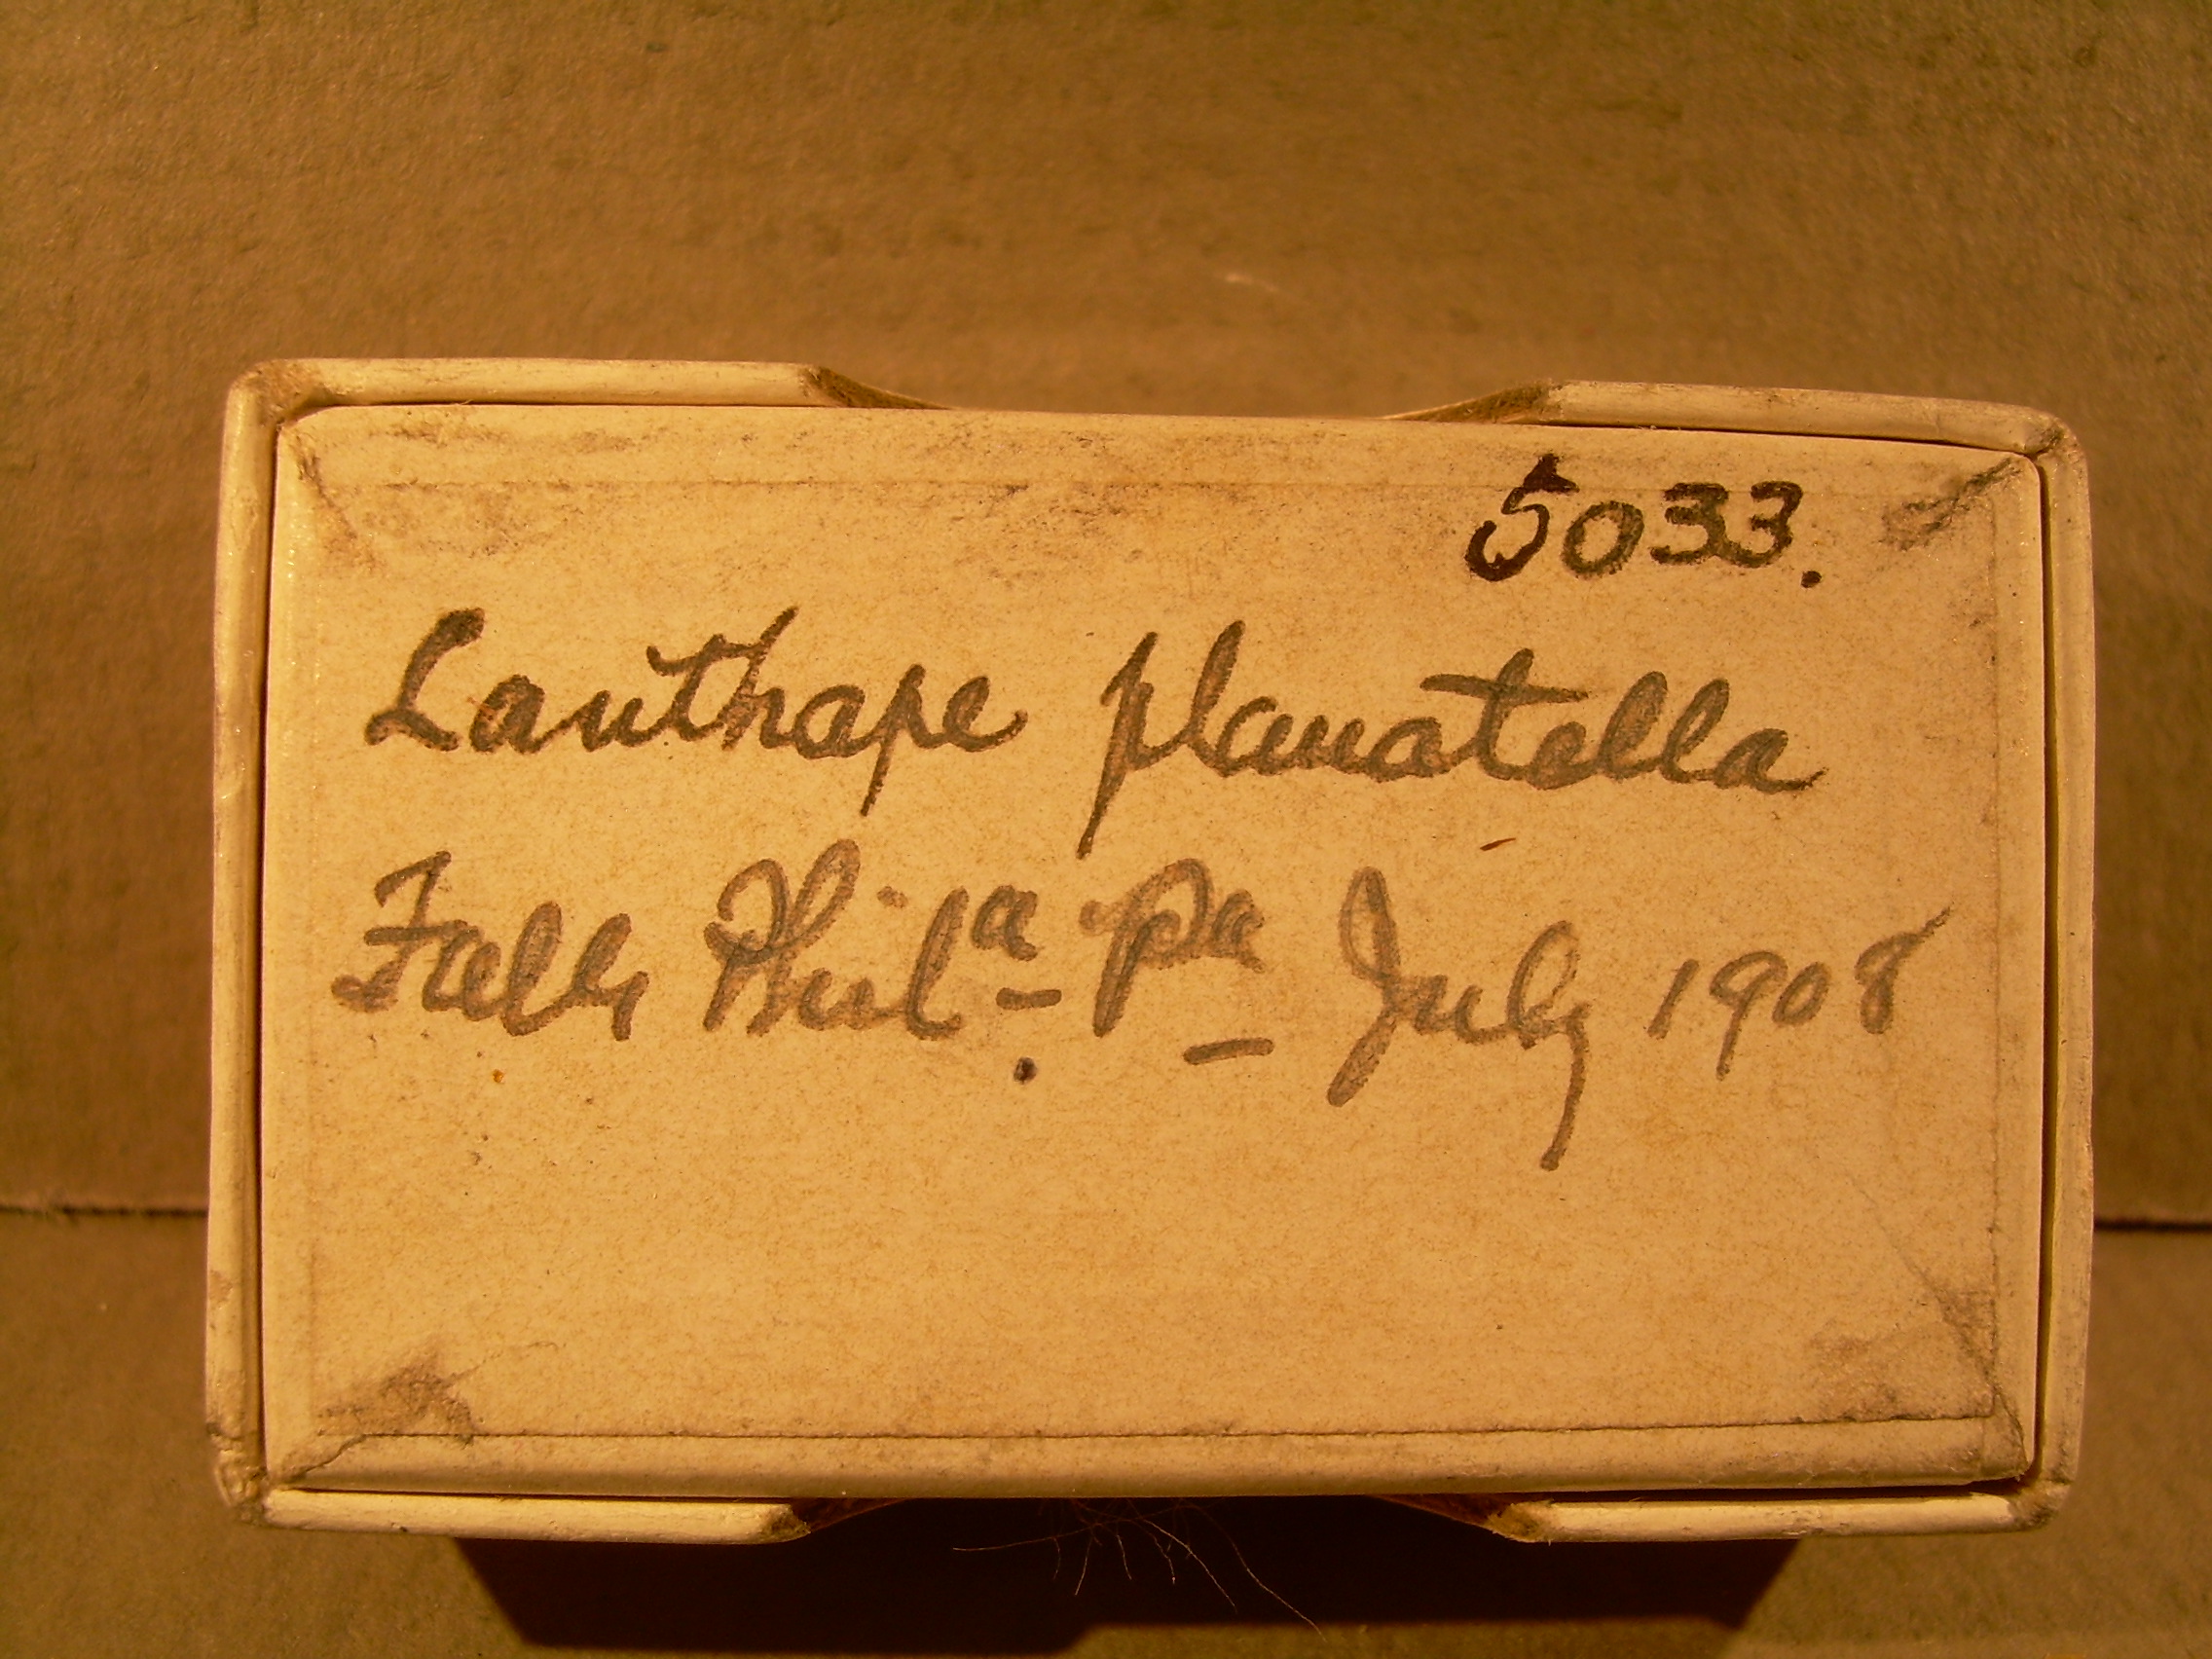 5033.
Lanthape planatella
Falls Phila. Pa July 1908